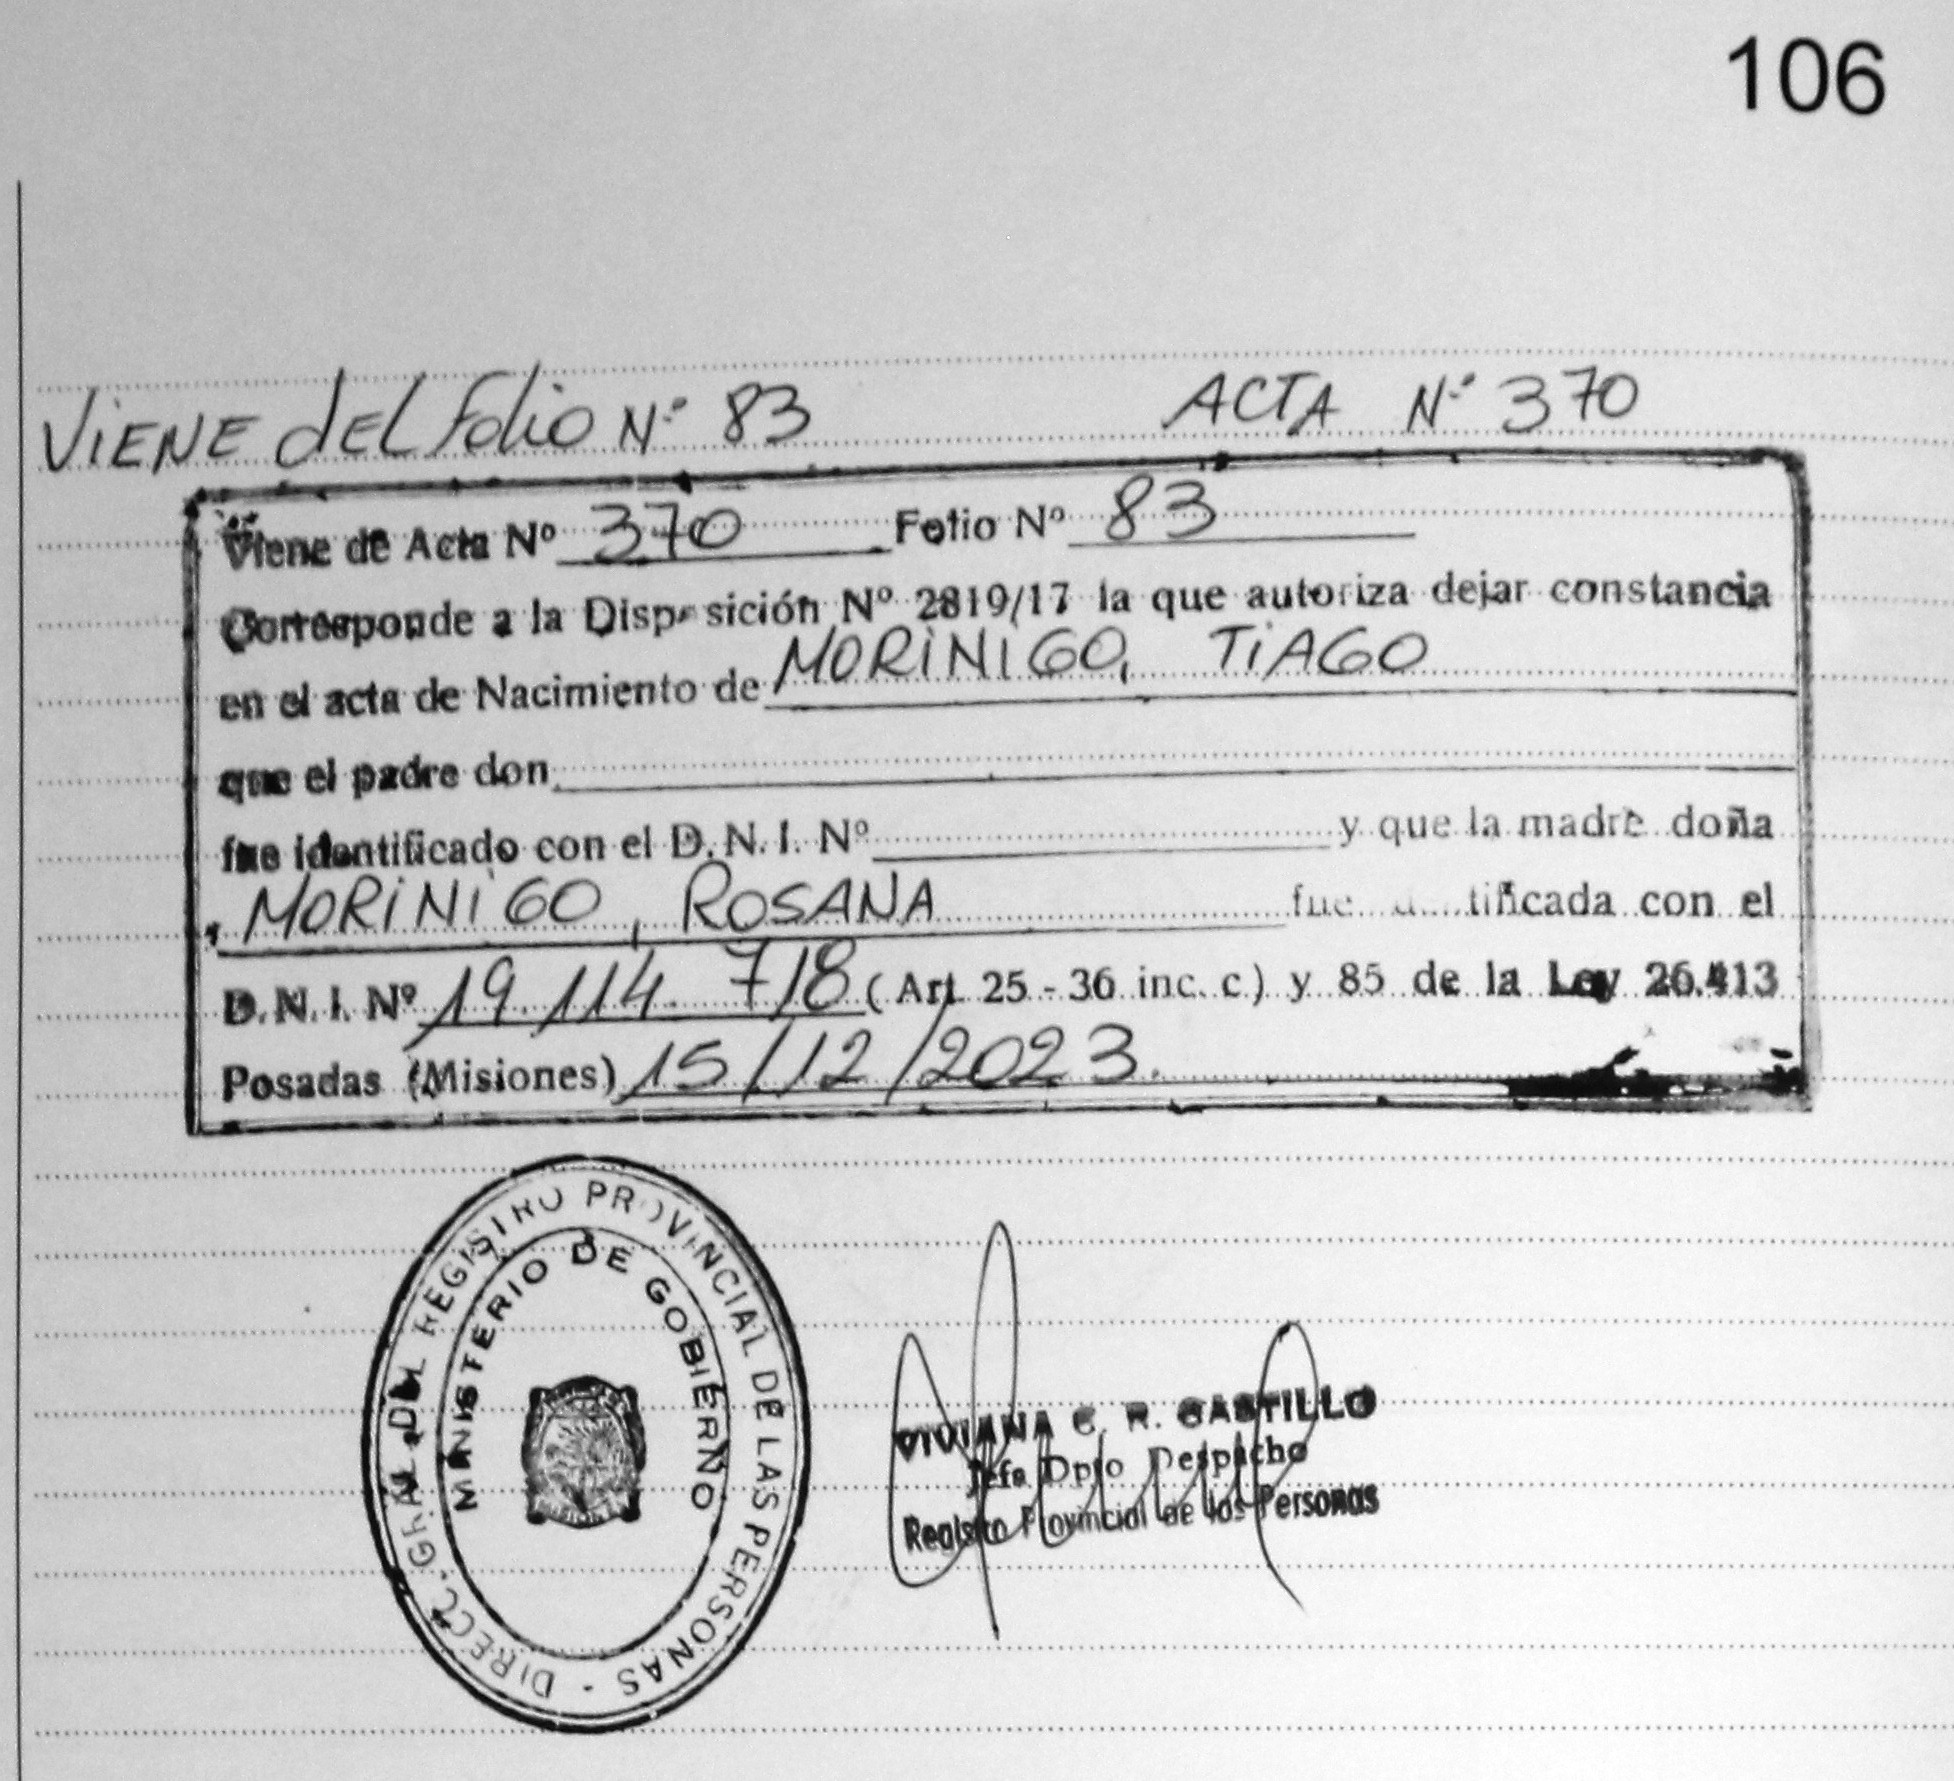 106
VIENE DEL Folio N° 83 ACTA N° 370
Viene de Acta Nº 370 Folio Nº 83
Corresponde a la Disposición Nº 2819/17 la que autoriza dejar constancia
en el acta de Nacimiento de MORINIGO, TIAGO
que el padre don
fue identificado con el D.N.I. Nº y que la madre doña
MORINIGO, ROSANA fue tificada con el
D.N.I. Nº 19.114.718 (Art 25 - 36 inc. c) y 85 de la Ley 26.413
Posadas (Misiones) 15/12/2023.
DIRECC. GRAL. DEL REGISTRO PROVINCIAL DE LAS PERSONAS -
MINISTERIO DE GOBIERNO
VIVIANA C. R. CASTILLO
Jefe Dpto Despacho
Registro Provincial de las Personas